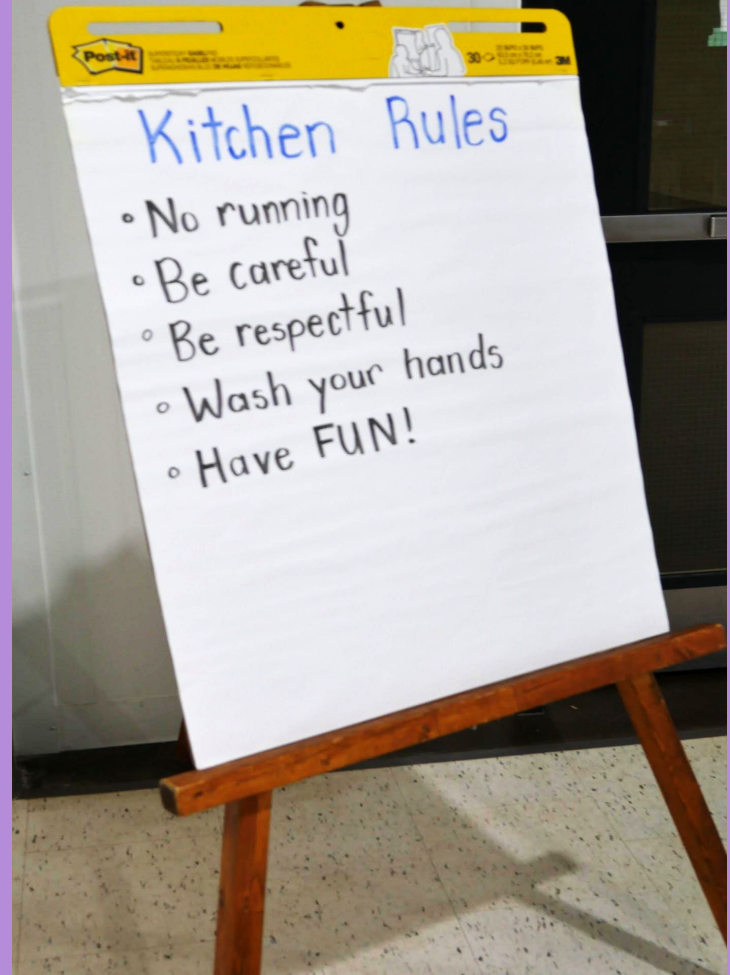 Post-it
30
3M
Kitchen Rules
No running
Be careful
Be respectful
Wash your hands
Have FUN!